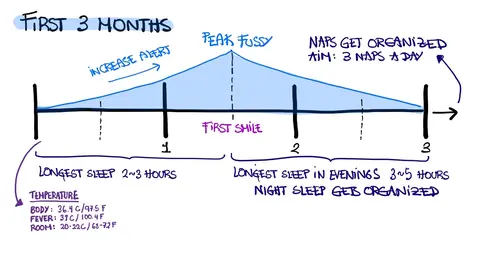 FIRST 3 MONTHS
PEAK FUSSY
INCREASE ALERT
NAPS GET ORGANIZED
AIM: 3 NAPS A DAY
FIRST SMILE
1
2
3
LONGEST SLEEP 2~3 HOURS
LONGEST SLEEP IN EVENINGS 3~5 HOURS
NIGHT SLEEP GETS ORGANIZED
TEMPERATURE
BODY: 36.4 C/97.5 F
FEVER: 38 C/100.4 F
ROOM: 20-22C/68-72 F